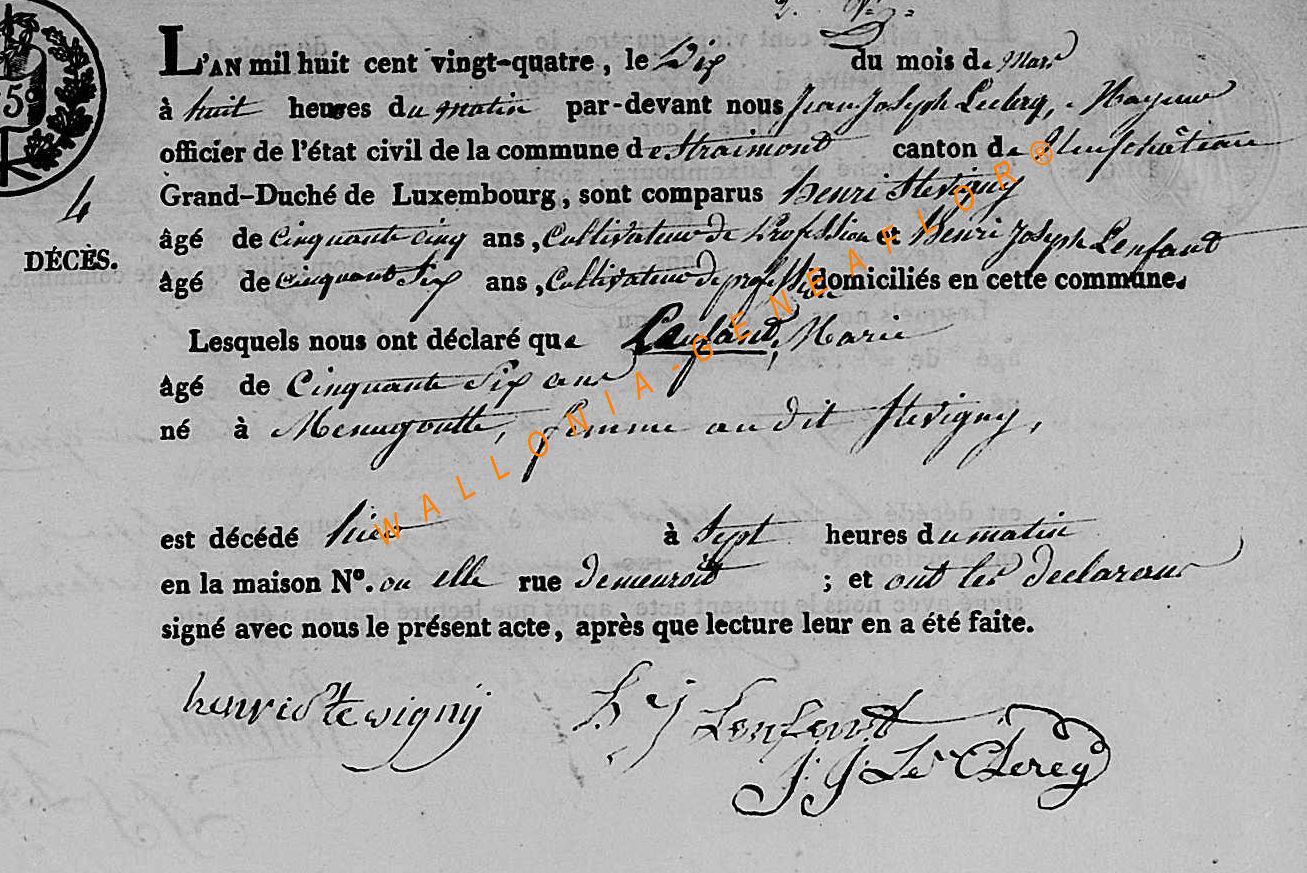 L'AN mil huit cent vingt-quatre, le Dix du mois de Mars
à huit heures du matin par-devant nous Jean Joseph Leclercq, Mayeur
officier de l'état civil de la commune de Straimont canton de Neufchâteau
Grand-Duché de Luxembourg, sont comparus henri Stevigny
âgé de Cinquante cinq ans, Cultivateur de Profession et Henri Joseph Lenfant
4
DÉCÈS.
âgé de cinquant Six ans, Cultivateur de profession domiciliés en cette commune.
Lesquels nous ont déclaré que Lenfant, Marie
âgé de Cinquante Six ans
né à Menugoutte, femme au dit Stevigny,
est décédé hier à Sept heures du matin
en la maison Nº. ou elle rue demeuroit ; et ont les declarans
signé avec nous le présent acte, après que lecture leur en a été faite.
henri Stewigny
h j Lenfant
J. J. Le Clercq
WALLONIA-GENEAFLOR®
5